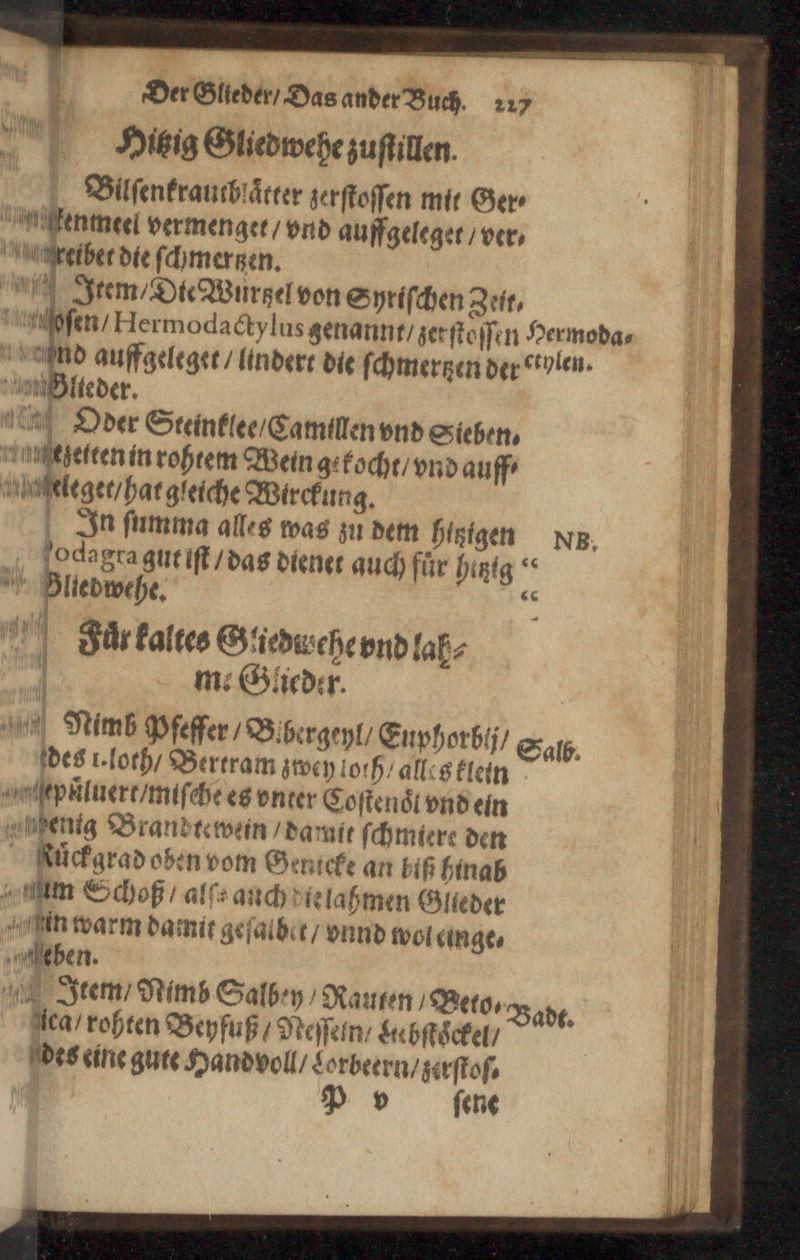 Der Glieder/ Das ander Buch. 227
Hitzig Gliedwehe zustillen.
Bilsenkrautblåtter zerstossen mit Ger-
stenmeel vermenget / vnd auffgeleget / ver-
treibet die schmertzen.
Item/ Die Wurtzel von Syrischen Zeit-
losen/ Hermodactylus genannt/ zerstossen Hermoda-
vnd auffgeleget / lindert die schmertzen der ctylen.
Glieder.
Oder Steinklee/ Camillen vnd Sieben-
gezeiten in rohtem Wein gekocht/ vnd auff-
geleget/ hat gleiche Wirckung.
In summa alles was zu dem hitzigen NB.
Podagra gut ist / das dienet auch fůr hitzig “
Gliedwehe. “
Fůr kaltes Gliedwehe vnd lah-
me Glieder.
Nimb Pfeffer / Bibergeyl/ Euphorbij/ Salb.
jdes 1. loth/ Bertram zwey loth/ alles klein
gepůluert/ mische es vnter Costenől vnd ein
wenig Brandtewein / damit schmiere den
Růckgrad oben vom Genicke an biß hinab
zum Schoß / alse auch die lahmen Glieder
fein warm damit gesalbet / vnnd wol einge-
rieben.
Item/ Nimb Salbey / Rauten / Beto- Badt.
nica/ rohten Beyfuß / Nesseln/ Liebstőckel/
jdes eine gute Handvoll/ Lorbeern/ zerstos-
P v sene